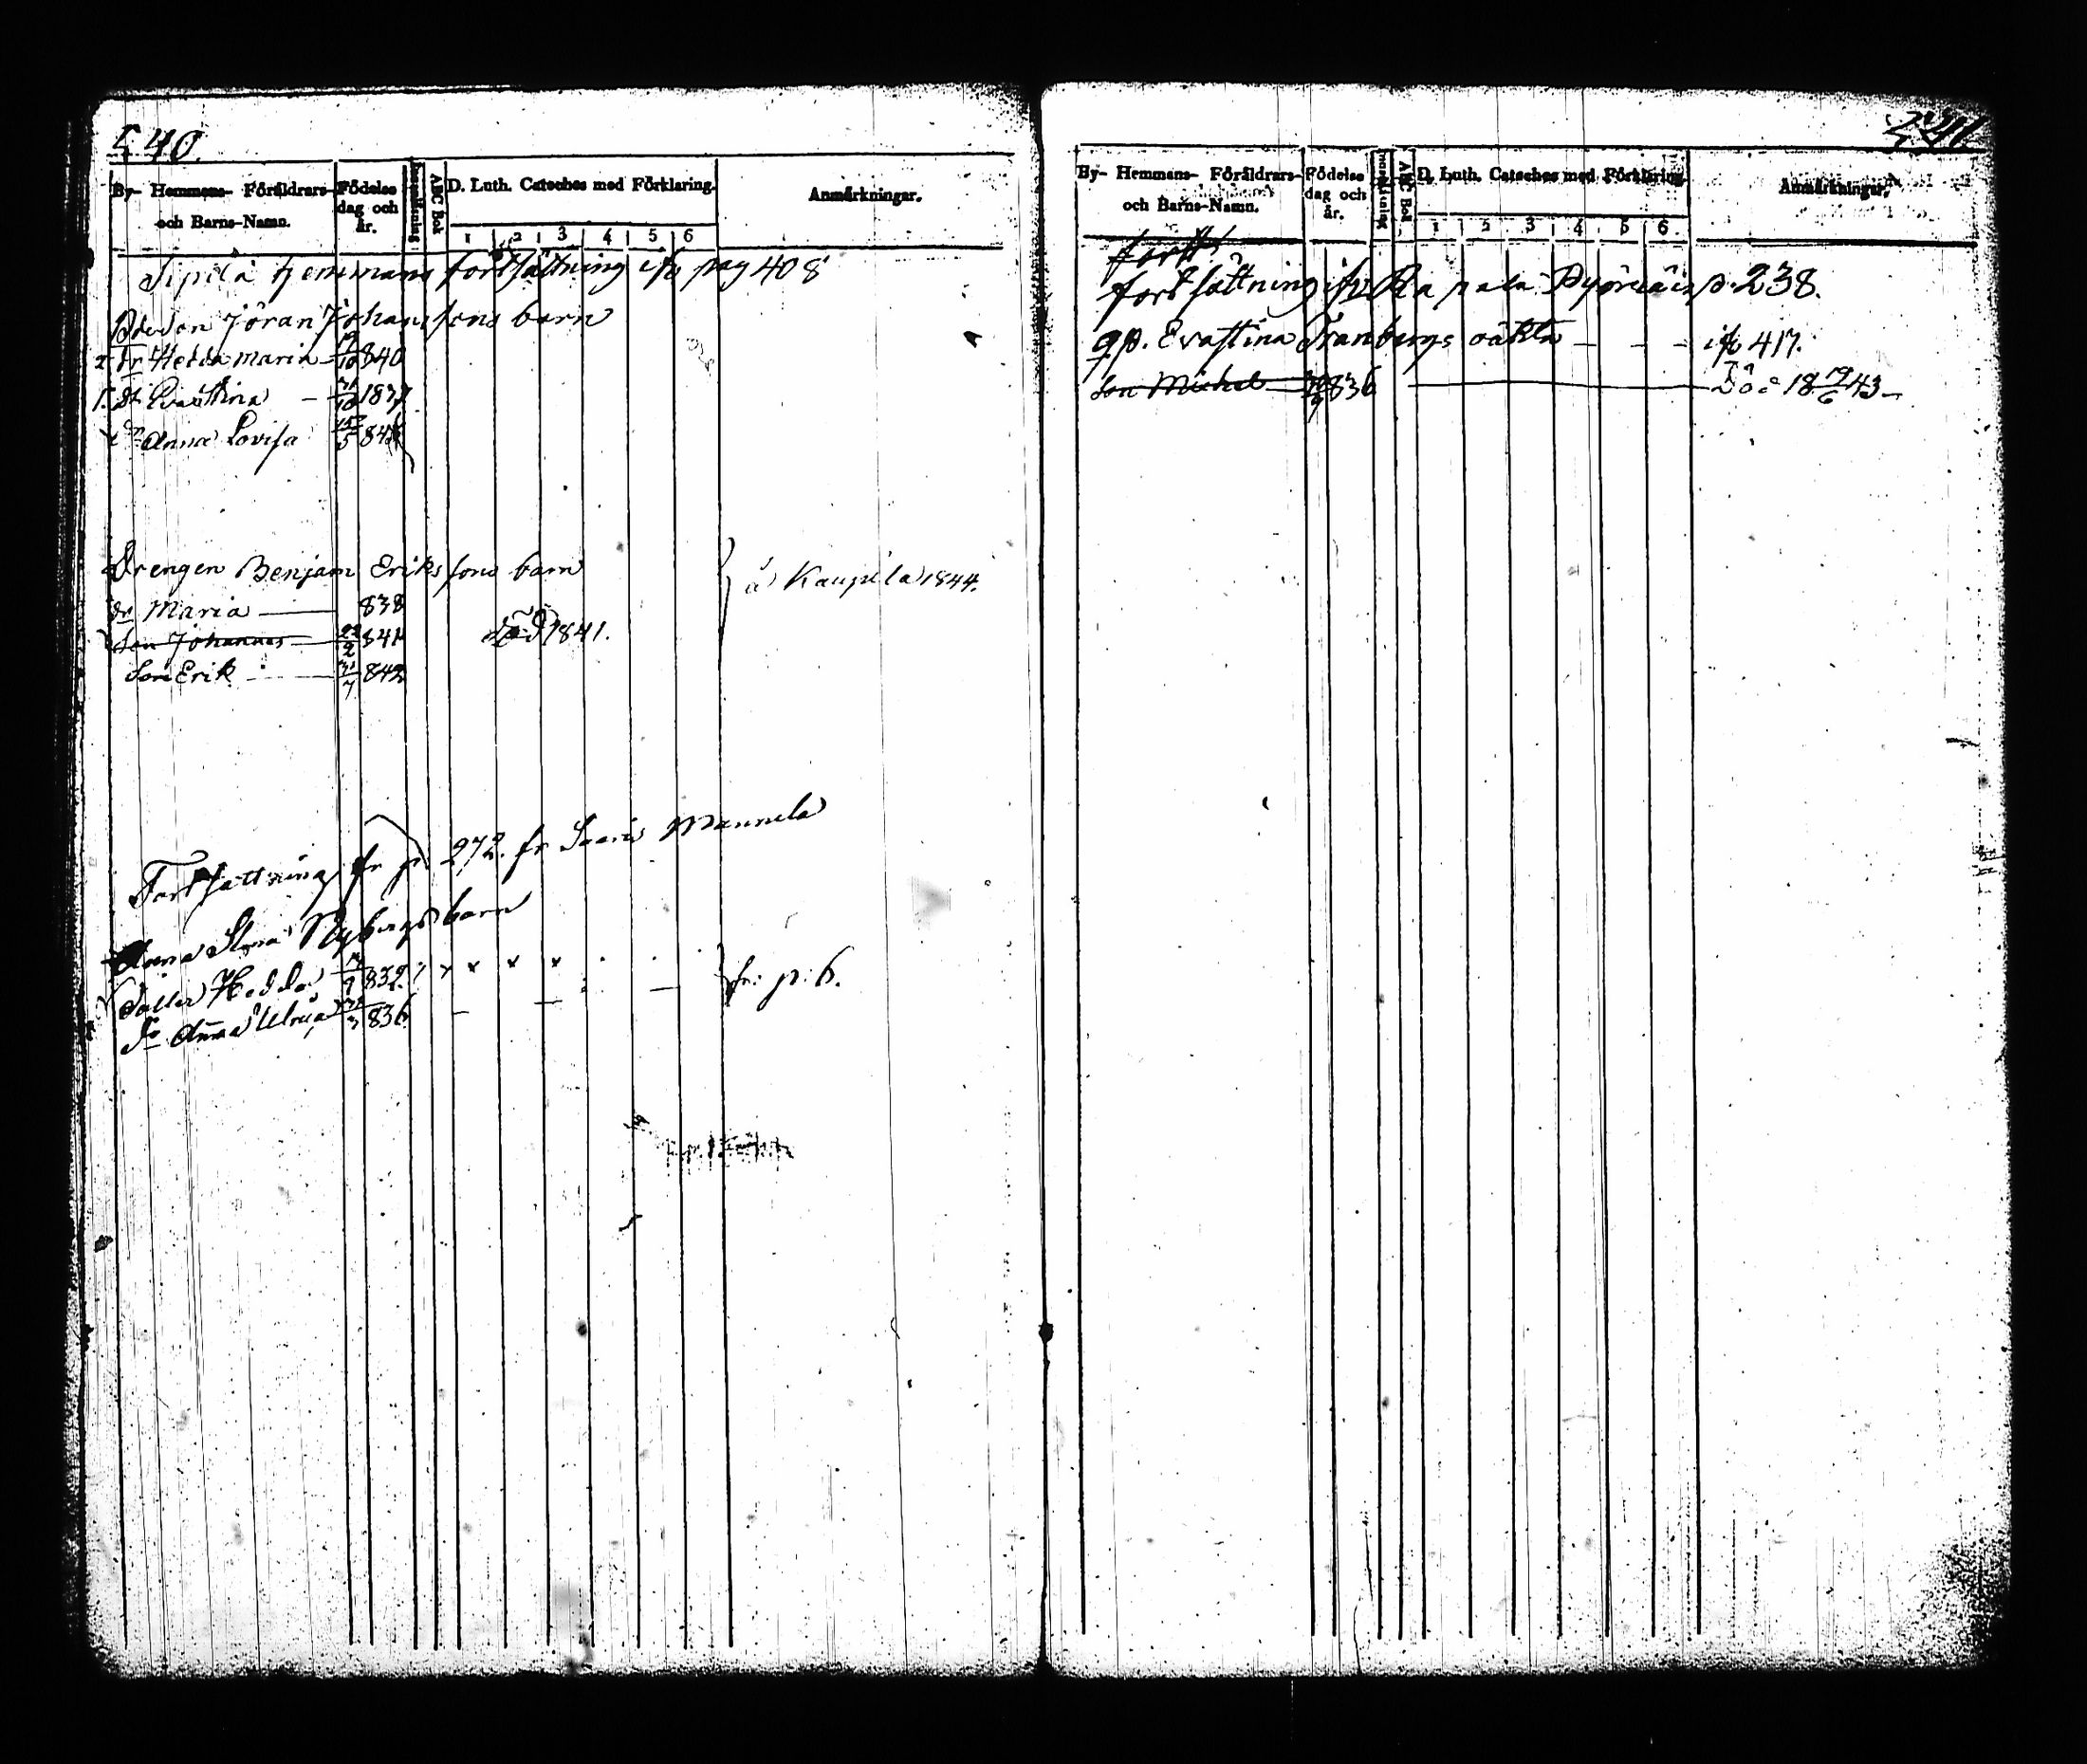 540.
By- Hemmans- Föräldrars- och Barns-Namn. Födelse dag och år. ABC Bok D. Luth. Cateches med Förklaring. Anmärkningar.
1 2 3 4 5 6
Sipilä hemmans fortsättning ifr pag 408
Jöran Johanssons barn
2 dr Hedda Maria 10 840
1. dr Evastina 10 1837
Anna Lovisa 15/5 84
Drengen Benjam Erikssons barn
å Kaupila 1844.
dr Maria 838
Son Johannes 22/2 841 död 1841.
Son Erik 31/7 842
Fortsättning fr p 272. fr Saari Mannila
Anna Nybergs barn
Dotter Hedda 9 832. fr: p: 6.
Dr Anna Ulrica 3 836
541.
By- Hemmans- Föräldrars- och Barns-Namn. Födelse dag och år. Innanläsning ABC Bok D. Luth. Cateches med Förklaring. Anmärkningar.
1 2 3 4 5 6
forts
fortsättning ifr Rapala p. 238.
qp. Evastina Tranbergs oäkta ifr 417.
Son Michel 9 836 Död 18 19/6 43